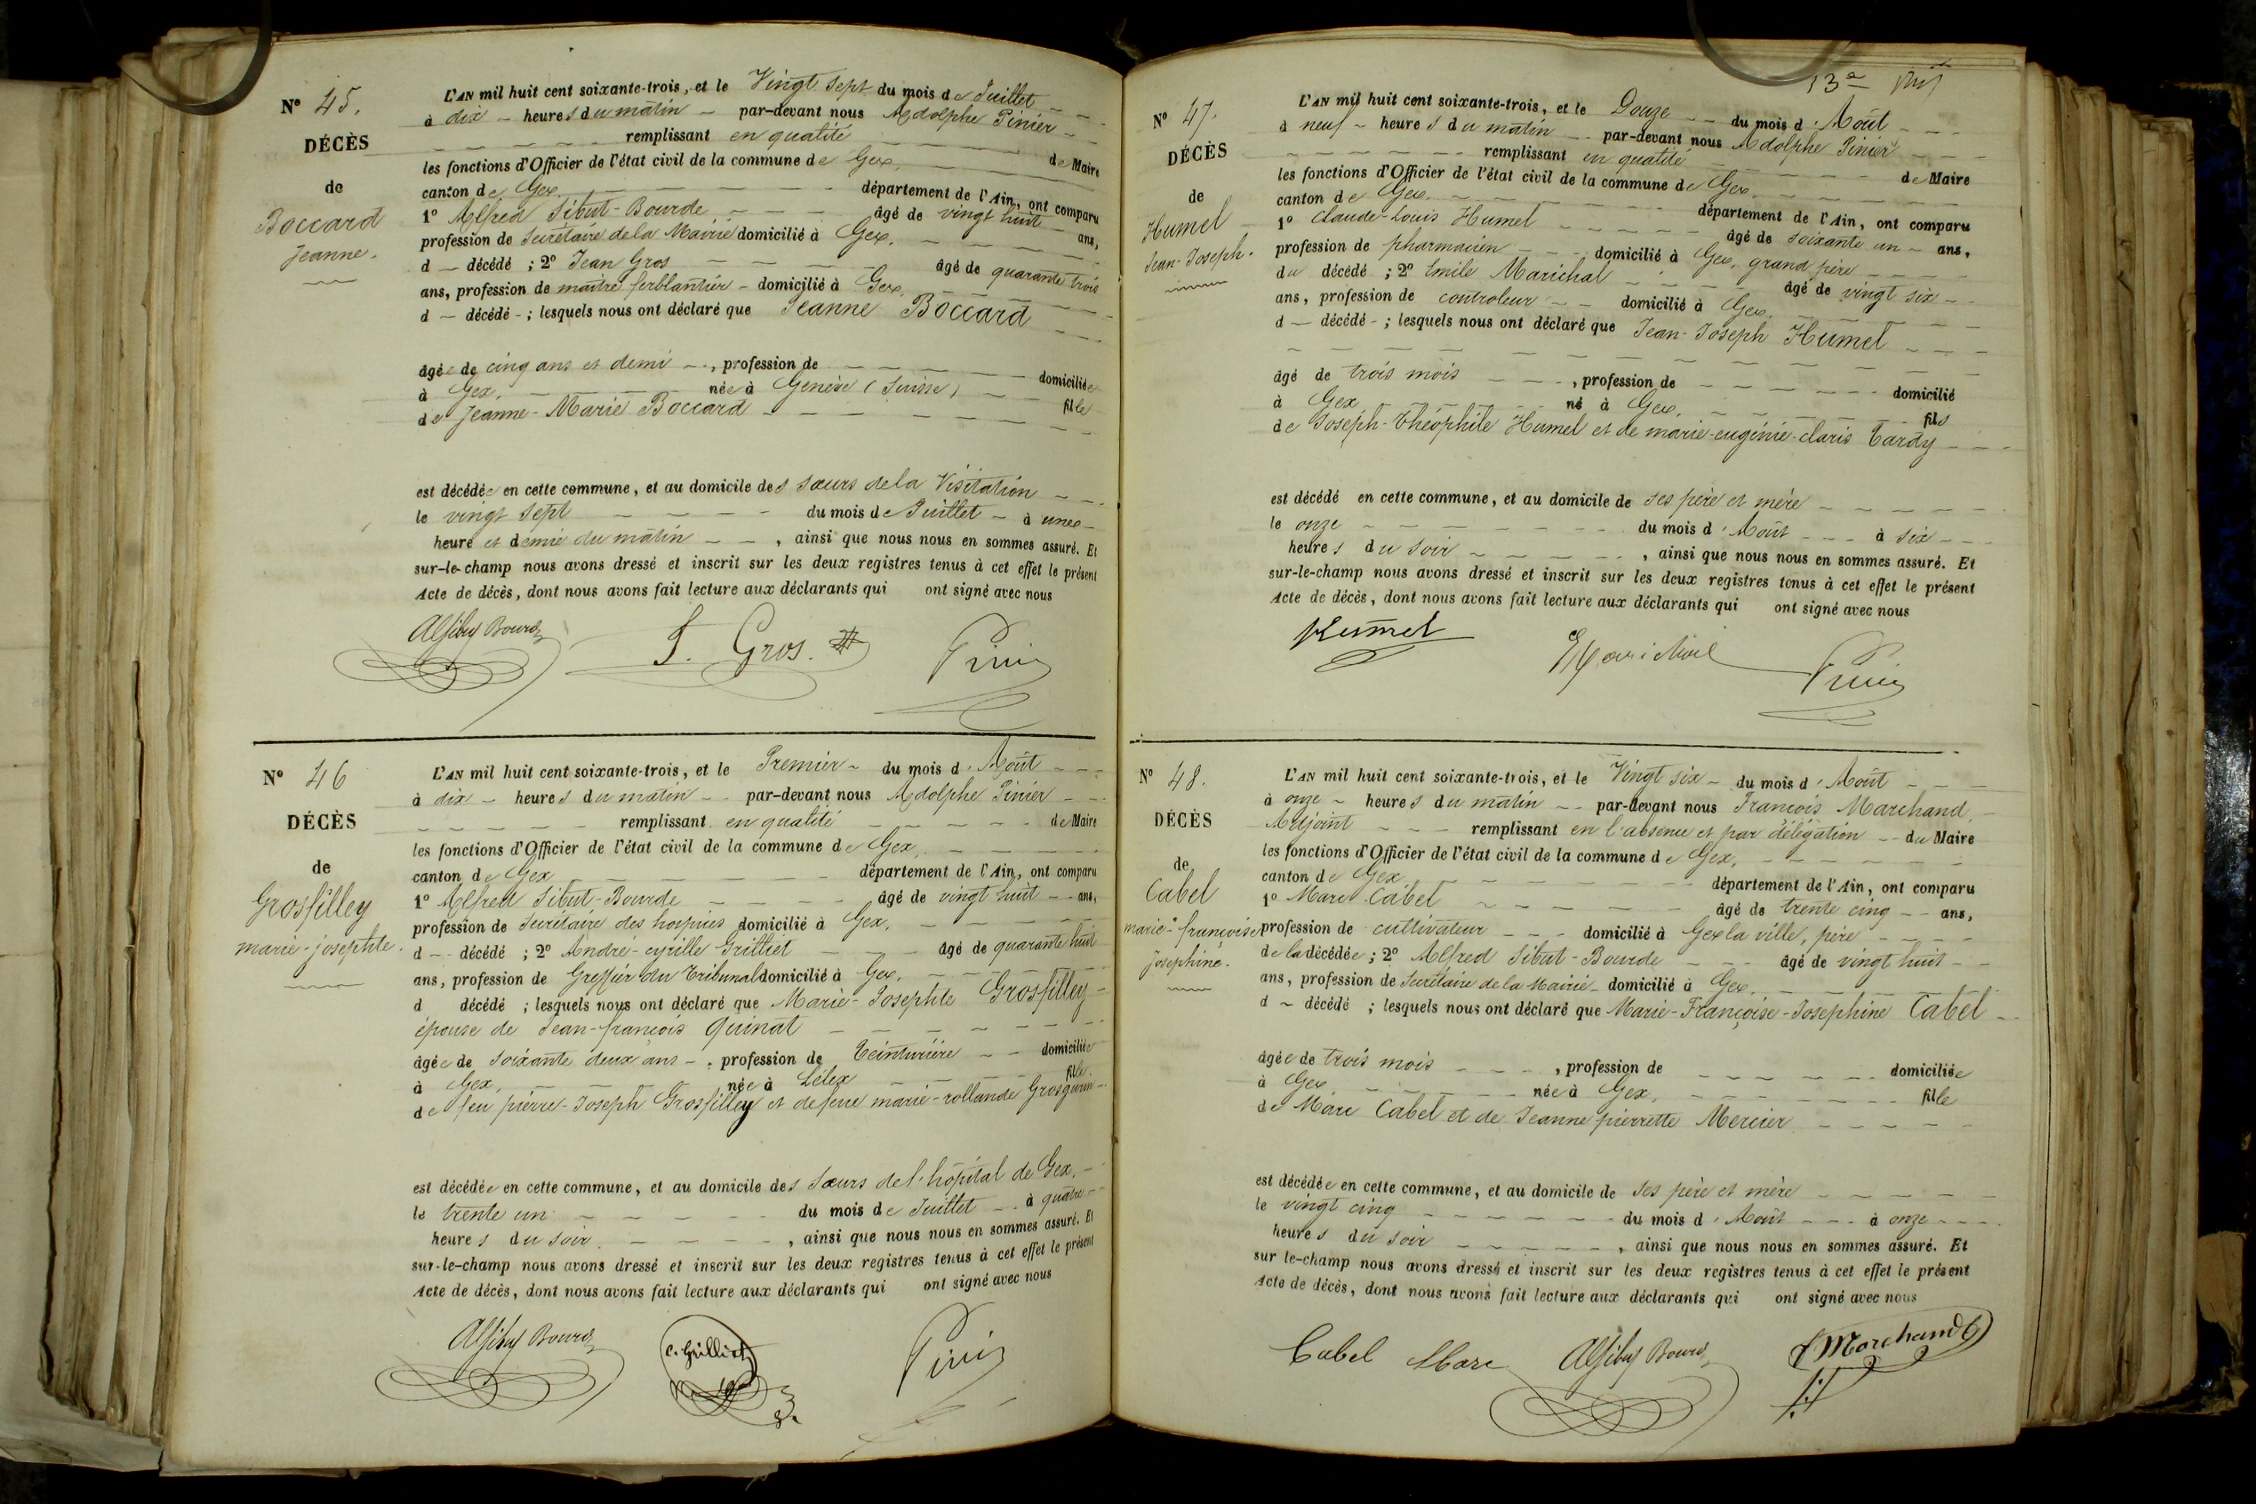 N° 45.
DÉCÈS
de
Boccard
Jeanne.
L'AN mil huit cent soixante-trois, et le Vingt sept du mois de Juillet
à dix heures du matin par-devant nous Adolphe Pinier
remplissant en qualité de Maire
les fonctions d'Officier de l'état civil de la commune de Gex,
canton de Gex, département de l'Ain, ont comparu
1° Alfred Sibut-Bourde âgé de vingt huit ans,
profession de Secrétaire de la Mairie domicilié à Gex,
d décédé ; 2° Jean Gros âgé de quarante trois
ans, profession de maître ferblantier domicilié à Gex,
d décédé ; lesquels nous ont déclaré que Jeanne Boccard
âgée de cinq ans et demi , profession de domiciliée
à Gex, née à Genève (Suisse) fille
de Jeanne-Marie Boccard
est décédée en cette commune, et au domicile des sœurs de la Visitation
le vingt sept du mois de Juillet à une
heure et demie du matin , ainsi que nous nous en sommes assuré. Et
sur-le-champ nous avons dressé et inscrit sur les deux registres tenus à cet effet le présent
Acte de décès, dont nous avons fait lecture aux déclarants qui ont signé avec nous
A Sibut Bourde J. Gros. Pinier
N° 46
DÉCÈS
de
Grosfilley
marie-josephte.
L'AN mil huit cent soixante-trois, et le Premier du mois d'Août
à dix heures du matin par-devant nous Adolphe Pinier
remplissant en qualité de Maire
les fonctions d'Officier de l'état civil de la commune de Gex,
canton de Gex département de l'Ain, ont comparu
1° Alfred Sibut-Bourde âgé de vingt huit ans,
profession de Secrétaire des hospices domicilié à Gex,
d décédé ; 2° André-cyrille Grilliet âgé de quarante huit
ans, profession de Greffier du Tribunal domicilié à Gex,
d décédé ; lesquels nous ont déclaré que Marie-Josephte Grosfilley
épouse de Jean-françois Quinat
âgée de soixante deux ans , profession de Teinturière domiciliée
à Gex, née à Lélex fille
de feu pierre-Joseph Grosfilley et de feue marie-rollande Grosgurin
est décédée en cette commune, et au domicile des sœurs de l'hôpital de Gex,
le trente un du mois de Juillet à quatre
heures du soir , ainsi que nous nous en sommes assuré. Et
sur-le-champ nous avons dressé et inscrit sur les deux registres tenus à cet effet le présent
Acte de décès, dont nous avons fait lecture aux déclarants qui ont signé avec nous
A Sibut Bourde C. Grilliet Pinier
13e
N° 47.
DÉCÈS
de
Humel
Jean-Joseph.
L'AN mil huit cent soixante-trois, et le Douze du mois d'Août
à neuf heures du matin par-devant nous Adolphe Pinier
remplissant en qualité de Maire
les fonctions d'Officier de l'état civil de la commune de Gex,
canton de Gex, département de l'Ain, ont comparu
1° Claude-Louis Humel âgé de soixante un ans,
profession de pharmacien domicilié à Gex, grand père
du décédé ; 2° Emile Marichal âgé de vingt six
ans, profession de controleur domicilié à Gex,
d décédé ; lesquels nous ont déclaré que Jean-Joseph Humel
âgé de trois mois , profession de domicilié
à Gex né à Gex, fils
de Joseph-Théophile Humel et de marie-eugénie-claris Tardy
est décédé en cette commune, et au domicile de ses père et mère
le onze du mois d'Août à six
heures du soir , ainsi que nous nous en sommes assuré. Et
sur-le-champ nous avons dressé et inscrit sur les deux registres tenus à cet effet le présent
Acte de décès, dont nous avons fait lecture aux déclarants qui ont signé avec nous
Humel E Marichal Pinier
N° 48.
DÉCÈS
de
Cabel
marie-françoise
Josephine.
L'AN mil huit cent soixante-trois, et le Vingt six du mois d'Août
à onze heures du matin par-devant nous François Marchand,
Adjoint remplissant en l'absence et par délégation du Maire
les fonctions d'Officier de l'état civil de la commune de Gex,
canton de Gex département de l'Ain, ont comparu
1° Marc Cabel âgé de trente cinq ans,
profession de cultivateur domicilié à Gex la ville, père
de la décédée ; 2° Alfred Sibut-Bourde âgé de vingt huit
ans, profession de Secrétaire de la Mairie domicilié à Gex,
d décédé ; lesquels nous ont déclaré que Marie-Françoise-Josephine Cabel
âgée de trois mois , profession de domiciliée
à Gex, née à Gex, fille
de Marc Cabel et de Jeanne pierrette Mercier
est décédée en cette commune, et au domicile de ses père et mère
le vingt cinq du mois d'Août à onze
heures du soir , ainsi que nous nous en sommes assuré. Et
sur le-champ nous avons dressé et inscrit sur les deux registres tenus à cet effet le présent
Acte de décès, dont nous avons fait lecture aux déclarants qui ont signé avec nous
Cabel Marc A Sibut Bourde f Marchand